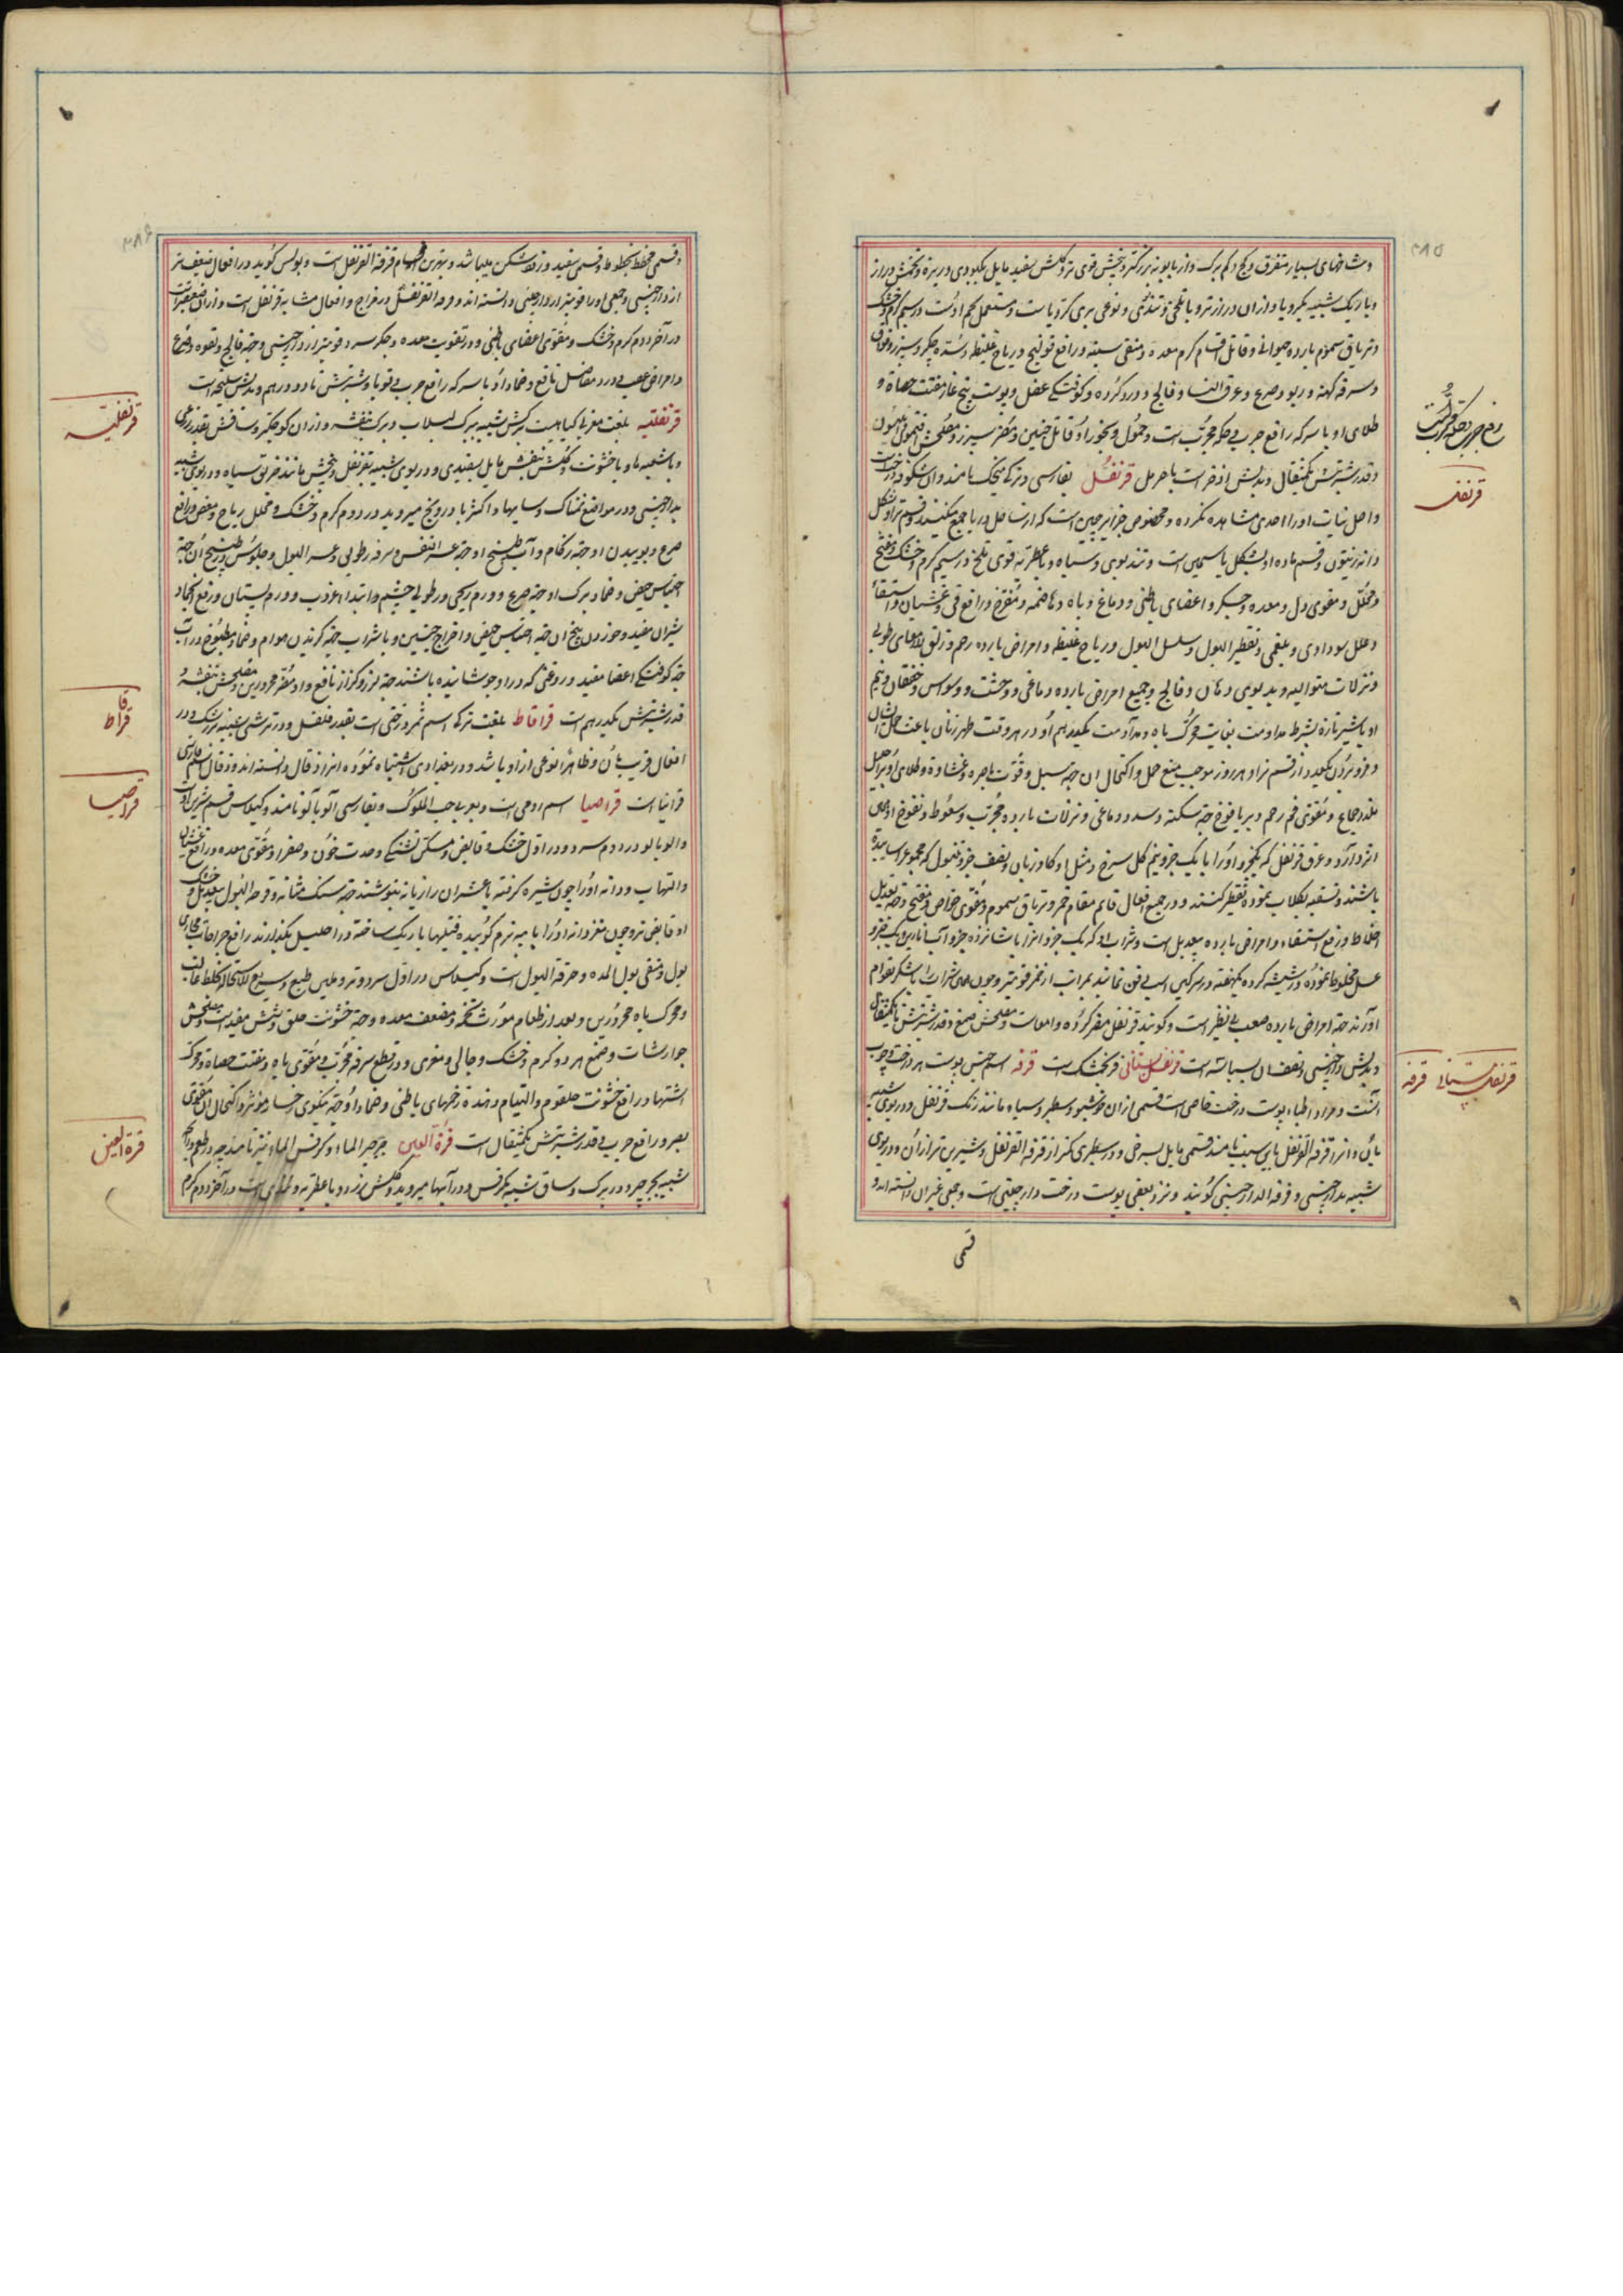 و شاخهای بسیار متفرق و کج و کم برک و از بابونه بزرکتر و بیخش قوی تر و کلش سفید مایل بکبودی و ریزه و تخمش دراز
و باریک شبیه بکرویا و ازان درازتر و با تلخی و تندی و نوعی بری کرویا است و مستعمل تخم اوست در سیم کرم و خشک
و تریاق سموم بارده حیوانی و قاتل اقسام کرم معده و منقی سینه و رافع قولنج و ریاح غلیظه و سده جکر و سپرز و
و سرفه کهنه و ربو و صرع و عرق النسا و فالج و درد کرده و کوفتکی عضل و پوست بیخ مفتت حصاة و
طلای او با سرکه رافع جرب و حکه مجرب است و حمول و بخور او قاتل جنین و مضر سپرز و مصلحش افتیمون
و قدر شربتش یکمثقال و بدلش اذخر است یا حرمل قرنفل بفارسی و ترکی میخک نامند و ان شکوفه درخت
و اصل نبات او را احدی مشاهده نکرده و مخصوص جزایر چین است که از ساحل دریا جمع میکنند و قسم نر او بشکل
دانه زیتون و قسم ماده او بشکل یاسمین است و تندبوی و سیاه و با عطریة قوی و تلخ در سیم کرم و خشک و مفتح
و محلل و مقوی دل و معده و جکر و اعضای باطنی و دماغ و باه و هاضمه و مفرح و رافع قی و غثیان و استسقا
و علل سوداوی و بلغمی و تقطیر البول و سلسل البول و ریاح غلیظه و امراض بارده رحم و زلق الامعای رطوبی
و نزلات متوالیه و بدبویی دهان و فالج و جمیع امراض بارده دماغی و وحشت و وسواس و خفقان و نیم
او با شیر تازه بشرط مداومت بغایت محرک باه و مداومت یکدرهم او در هر وقت طهر زنان باعث حمل ایشان
و فرو بردن یکعدد از قسم نر او هر روز موجب منع حمل و اکتحال ان جهة سبل و قوت باصره و غشاوه و طلای او بر احلیل
ملذذ جماع و مقوی فم رحم و بر یافوخ جهة سکته و سدد دماغی و نزلات بارده مجرب و سعوط و نفوخ او
اثر دارد و عرق قرنفل که یکجزو او را با یک جزو نیم کل سرخ و مثل او کاوزبان و نصف جزو تنبول که مجموع را ساییده
باشند و نسقیه بکلاب نموده تقطیر کنند و در جمیع افعال قایم مقام خمر و تریاق سموم و مقوی حواس و مفتح و جهة تعدیل
اخلاط و رفع استسقاء و امراض بارده بیعدیل است و شراب او که یک جزو انرا با شانزده جزو آب انارین و یک جزو
عسل مخلوط نموده در شیشه کرده یکهفته در سرکین اسب دفن نمایند بمراتب از خمر قویتر و چون همان شراب را با شکر بقوام
آورند جهة امراض بارده صعب بی نظیر است و کویند قرنفل مضر کرده و امعاست و مصلحش صمغ و قدر شربتش تا یکمثقال
و بدلش دارچینی و نصف ان بسباسه است قرنفل بستانی فرنجمشک است قرفه اسم جنس پوست هر درخت و چوب
آنست و مراد اطباء پوست درخت خاصی است قسمی ازان خوشبو و سطبر و سیاه مانند رنک قرنفل و در بوی شبیه
بان و انرا قرفة القرنفل باین سبب نامند و قسمی مایل بسرخی و در سطبری کمتر از قرفة القرنفل و شیرین تر ازان و در بوی
شبیه بدارچینی و قرفة الدارچینی کویند و نزد بعضی پوست درخت دارچینی است و جمعی غیر ان دانسته اند و
قسمی
قرنفل
قرنفل بستانی قرفه
٣٨٥
و قسمی مخطط بخطوط و قسمی سفید و زودشکن میباشد و بهترین اقسام قرفة القرنفل است و بولس کوید در افعال ضعیف تر
از دارچینی و جمعی او را قویتر از دارچینی دانسته اند و قرفة القرنفل در مزاج و افعال مشابه قرنفل است و ازان ضعیفتر است
در آخر دوم کرم و خشک و مقوی اعضای باطنی و در تقویت معده و جکر سرد قویتر از دارچینی و جهة فالج و لقوه و صرع
و امراض عصبی و درد مفاصل نافع و ضماد او با سرکه رافع جرب و قوبا و شربتش تا دو درهم و بدلش سلیخه است
قرنفلیه بلغت مغربی کیاهیست برکش شبیه ببرک لبلاب و برک بنفشه و ازان کوچکتر و ساقش بقدر ذرعی
و با شعبه ها و با خشونت و کلش بنفش مایل بسفیدی و در بوی شبیه بقرنفل و بیخش مانند خربق سیاه و در بوی شبیه
بدارچینی و در مواضع نمناک و سایها و اکثر با درونج میروید در دوم کرم و خشک و محلل ریاح و مفرح و رافع
صرع و بوییدن او جهة زکام و آب طبیخ او جهة عسر النفس و سرفه رطوبی و عسر البول و جلوس در طبیخ ان جهة
احتباس حیض و ضماد برک او جهة صرع و ورم ریحی و رطوبی چشم و ابتداء غرب و ورم پستان و رفع انجماد
شیران مفید و خوردن بیخ ان جهة احتباس حیض و اخراج جنین و با شراب جهة کزیدن هوام و ضماد مطبوخ در آب
جهة کوفتکی اعضا مفید و روغنی که در او جوشانیده باشند جهة لرز و کزاز نافع و او مضر محرورین و مصلحش بنفشه
قدر شربتش یکدرهم است قراقاط بلغت ترکی اسم ثمر درختی است بقدر فلفل و در ترشی شبیه بزرشک و در
افعال قریب بان و ظاهراً نوعی از او باشد و در بغدادی اشتباه نموده انرا ذقال دانسته اند و ذقال اسم فارسی
قرانیا است قراصیا اسم رومی است و بعربی حب الملوک و بفارسی آلوبالو نامند و کیلاس قسم شیرین اوست
و الوبالو در دوم سرد و در اول خشک و قابض و مسکن تشنکی و حدت خون و صفرا و مقوی معده و رافع غثیان
و التهاب و دانه او را چون شیره کرفته با عشر ان رازیانه بنوشند جهة سنک مثانه و قرحة البول بیعدیل و خشک
او قابض تر و چون مغز دانه او را با پیه نرم کوبیده فتیلها باریک ساخته در احلیل بکذارند رافع جراحات مجاری
بول و منقی بول المده و حرقة البول است و کیلاس در اول سرد و تر و ملین طبع و سریع الاستحاله بخلط غالب
و محرک باه محرورین و بعد از طعام مورث تخمه و مضعف معده و جهة خشونت حلق و شش مفید است و مصلحش
جوارشات و صمغ هر دو کرم و خشک و جالی و مغری و در قطع سرفه مجرب و مقوی باه و مفتت حصاة و محرک
اشتها و رافع خشونت حلقوم و التیام دهنده زخمهای باطنی و ضماد او جهة نیکویی رخسار مؤثر و اکتحال ان مقوی
بصر و رافع جرب و قدر شربتش یکمثقال است قرة العین جرجیر الماء و کرفس الماء نیز نامند چه در طعم و رایحه
شبیه بجرجیر و در برک و ساق شبیه بکرفس و در آبها میروید و کلش زرد و با عطریه و در آخر دوم کرم
قرنفلیه
قراقاط
قراصیا
قرة العین
٣٨٦